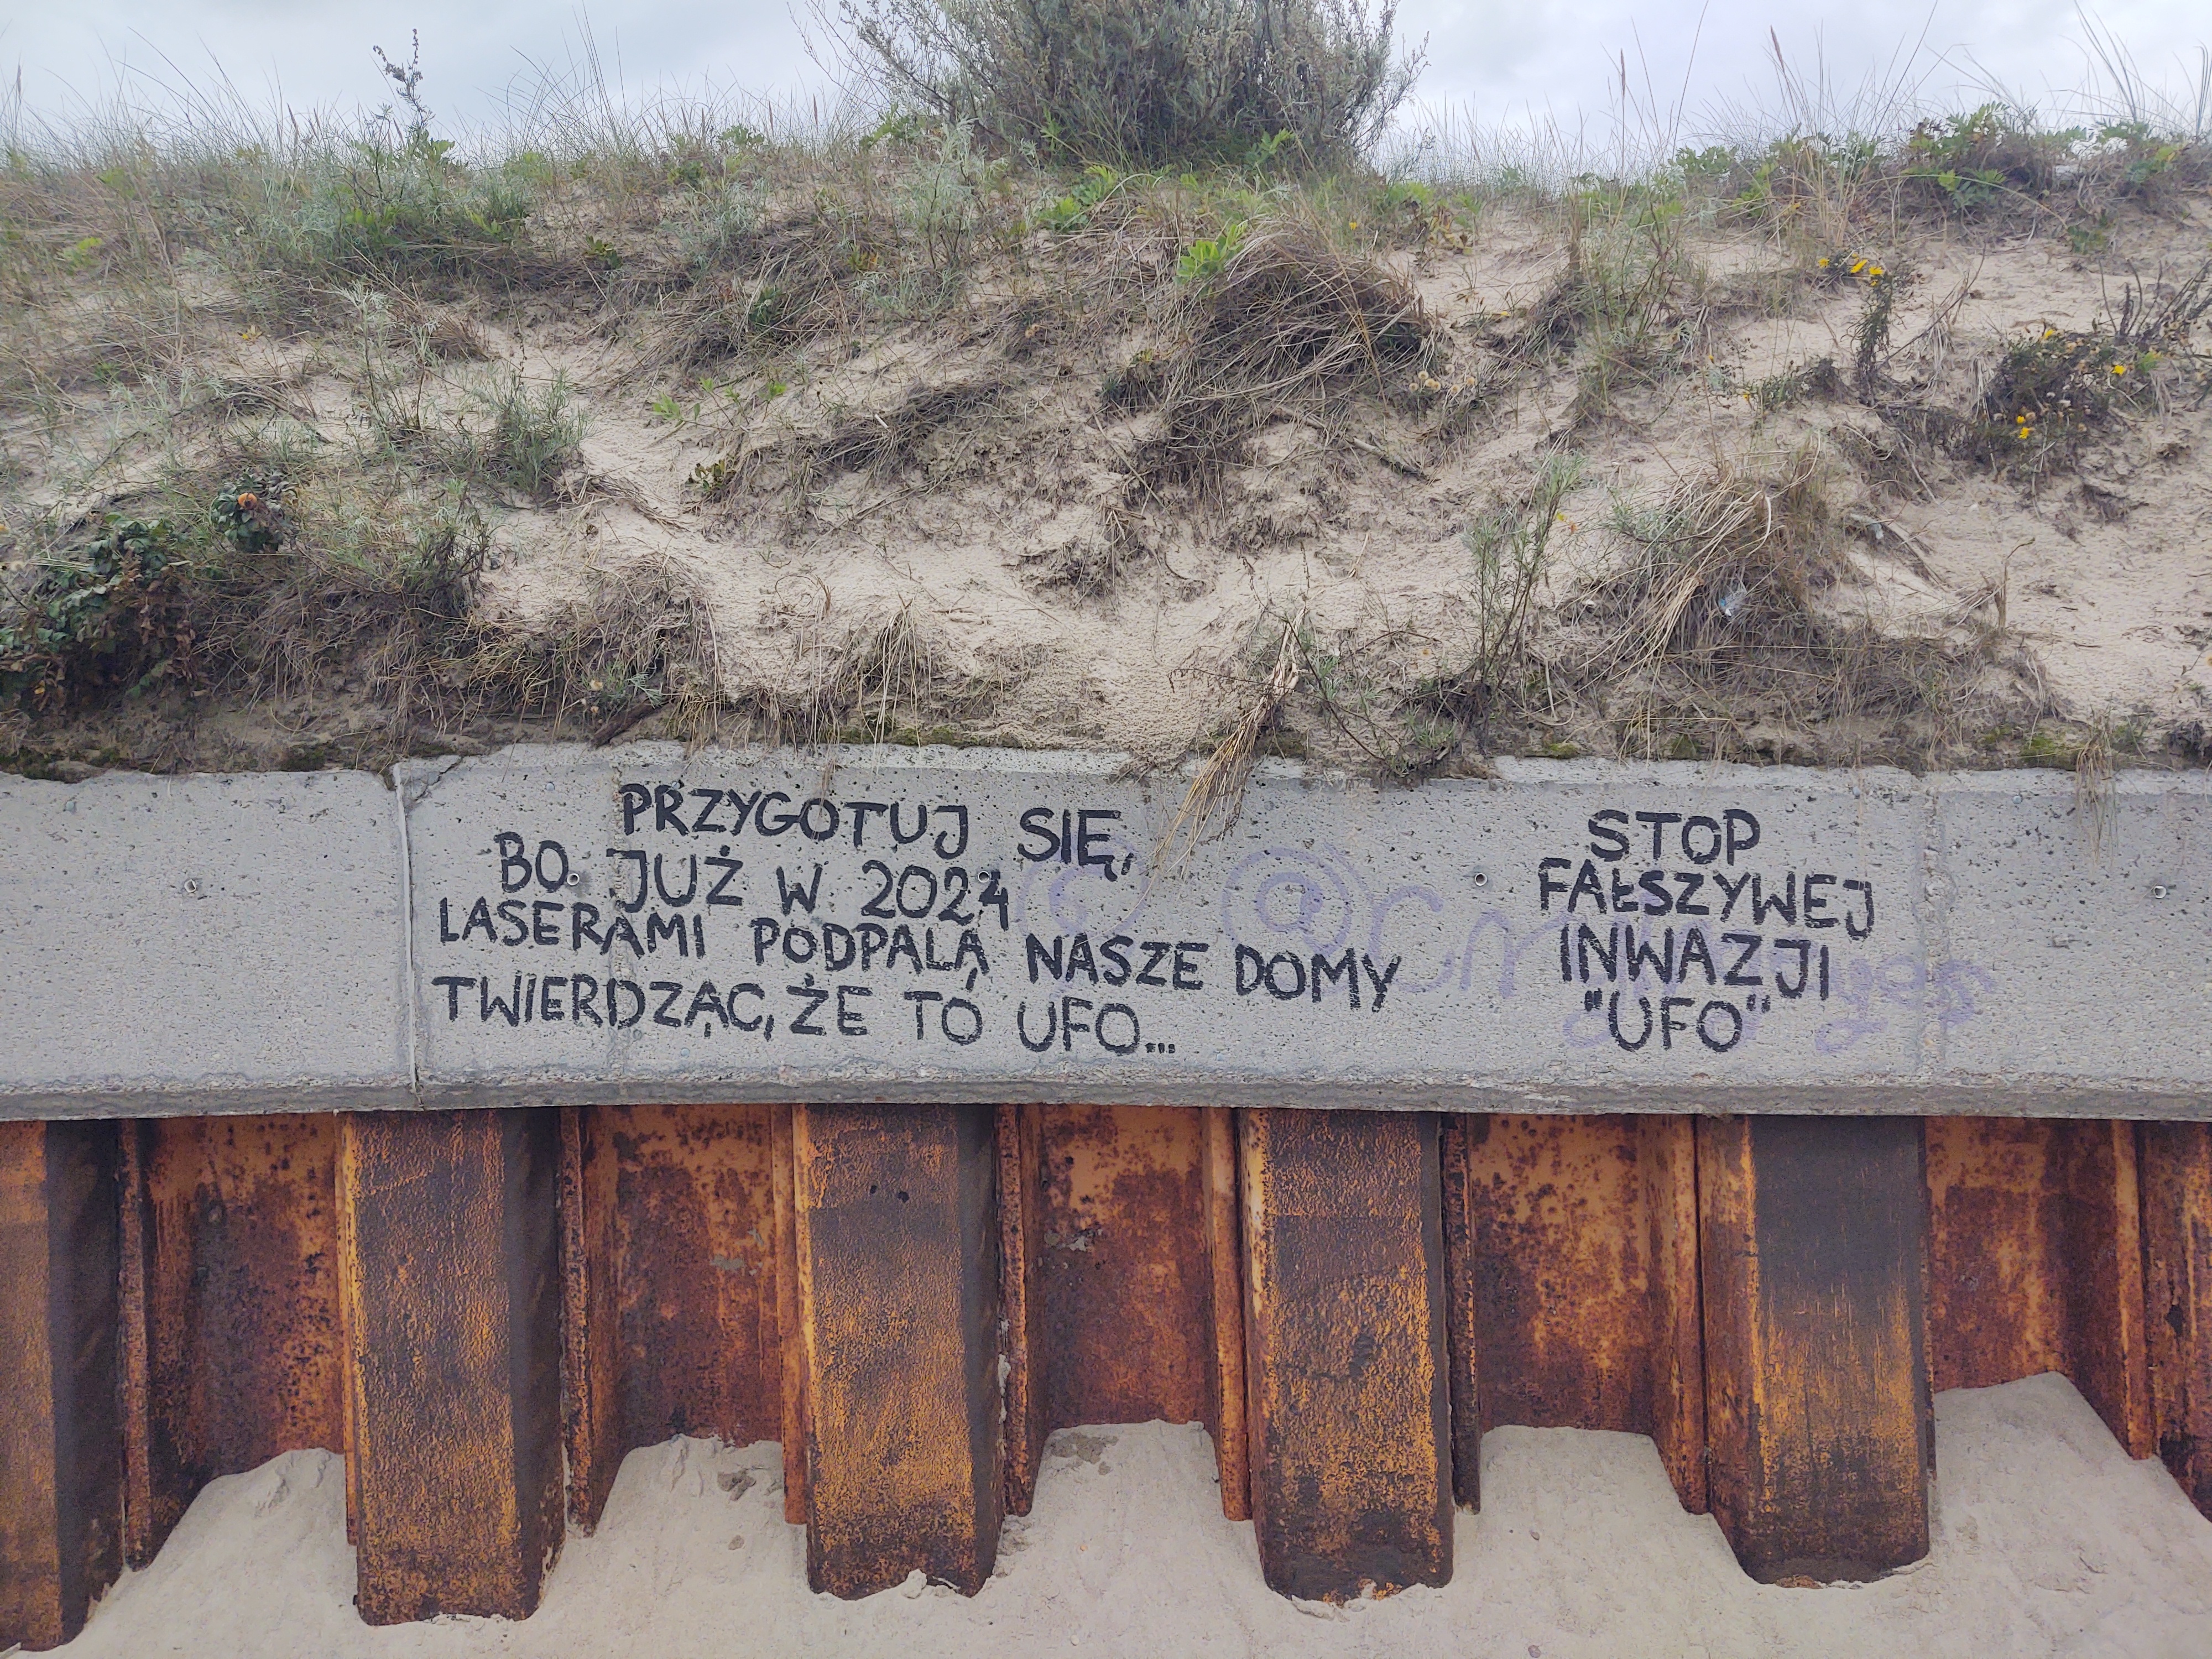 PRZYGOTUJ SIĘ,
BO JUŻ W 2024
LASERAMI PODPALĄ NASZE DOMY
TWIERDZĄC, ŻE TO UFO...
STOP
FAŁSZYWEJ
INWAZJI
"UFO"